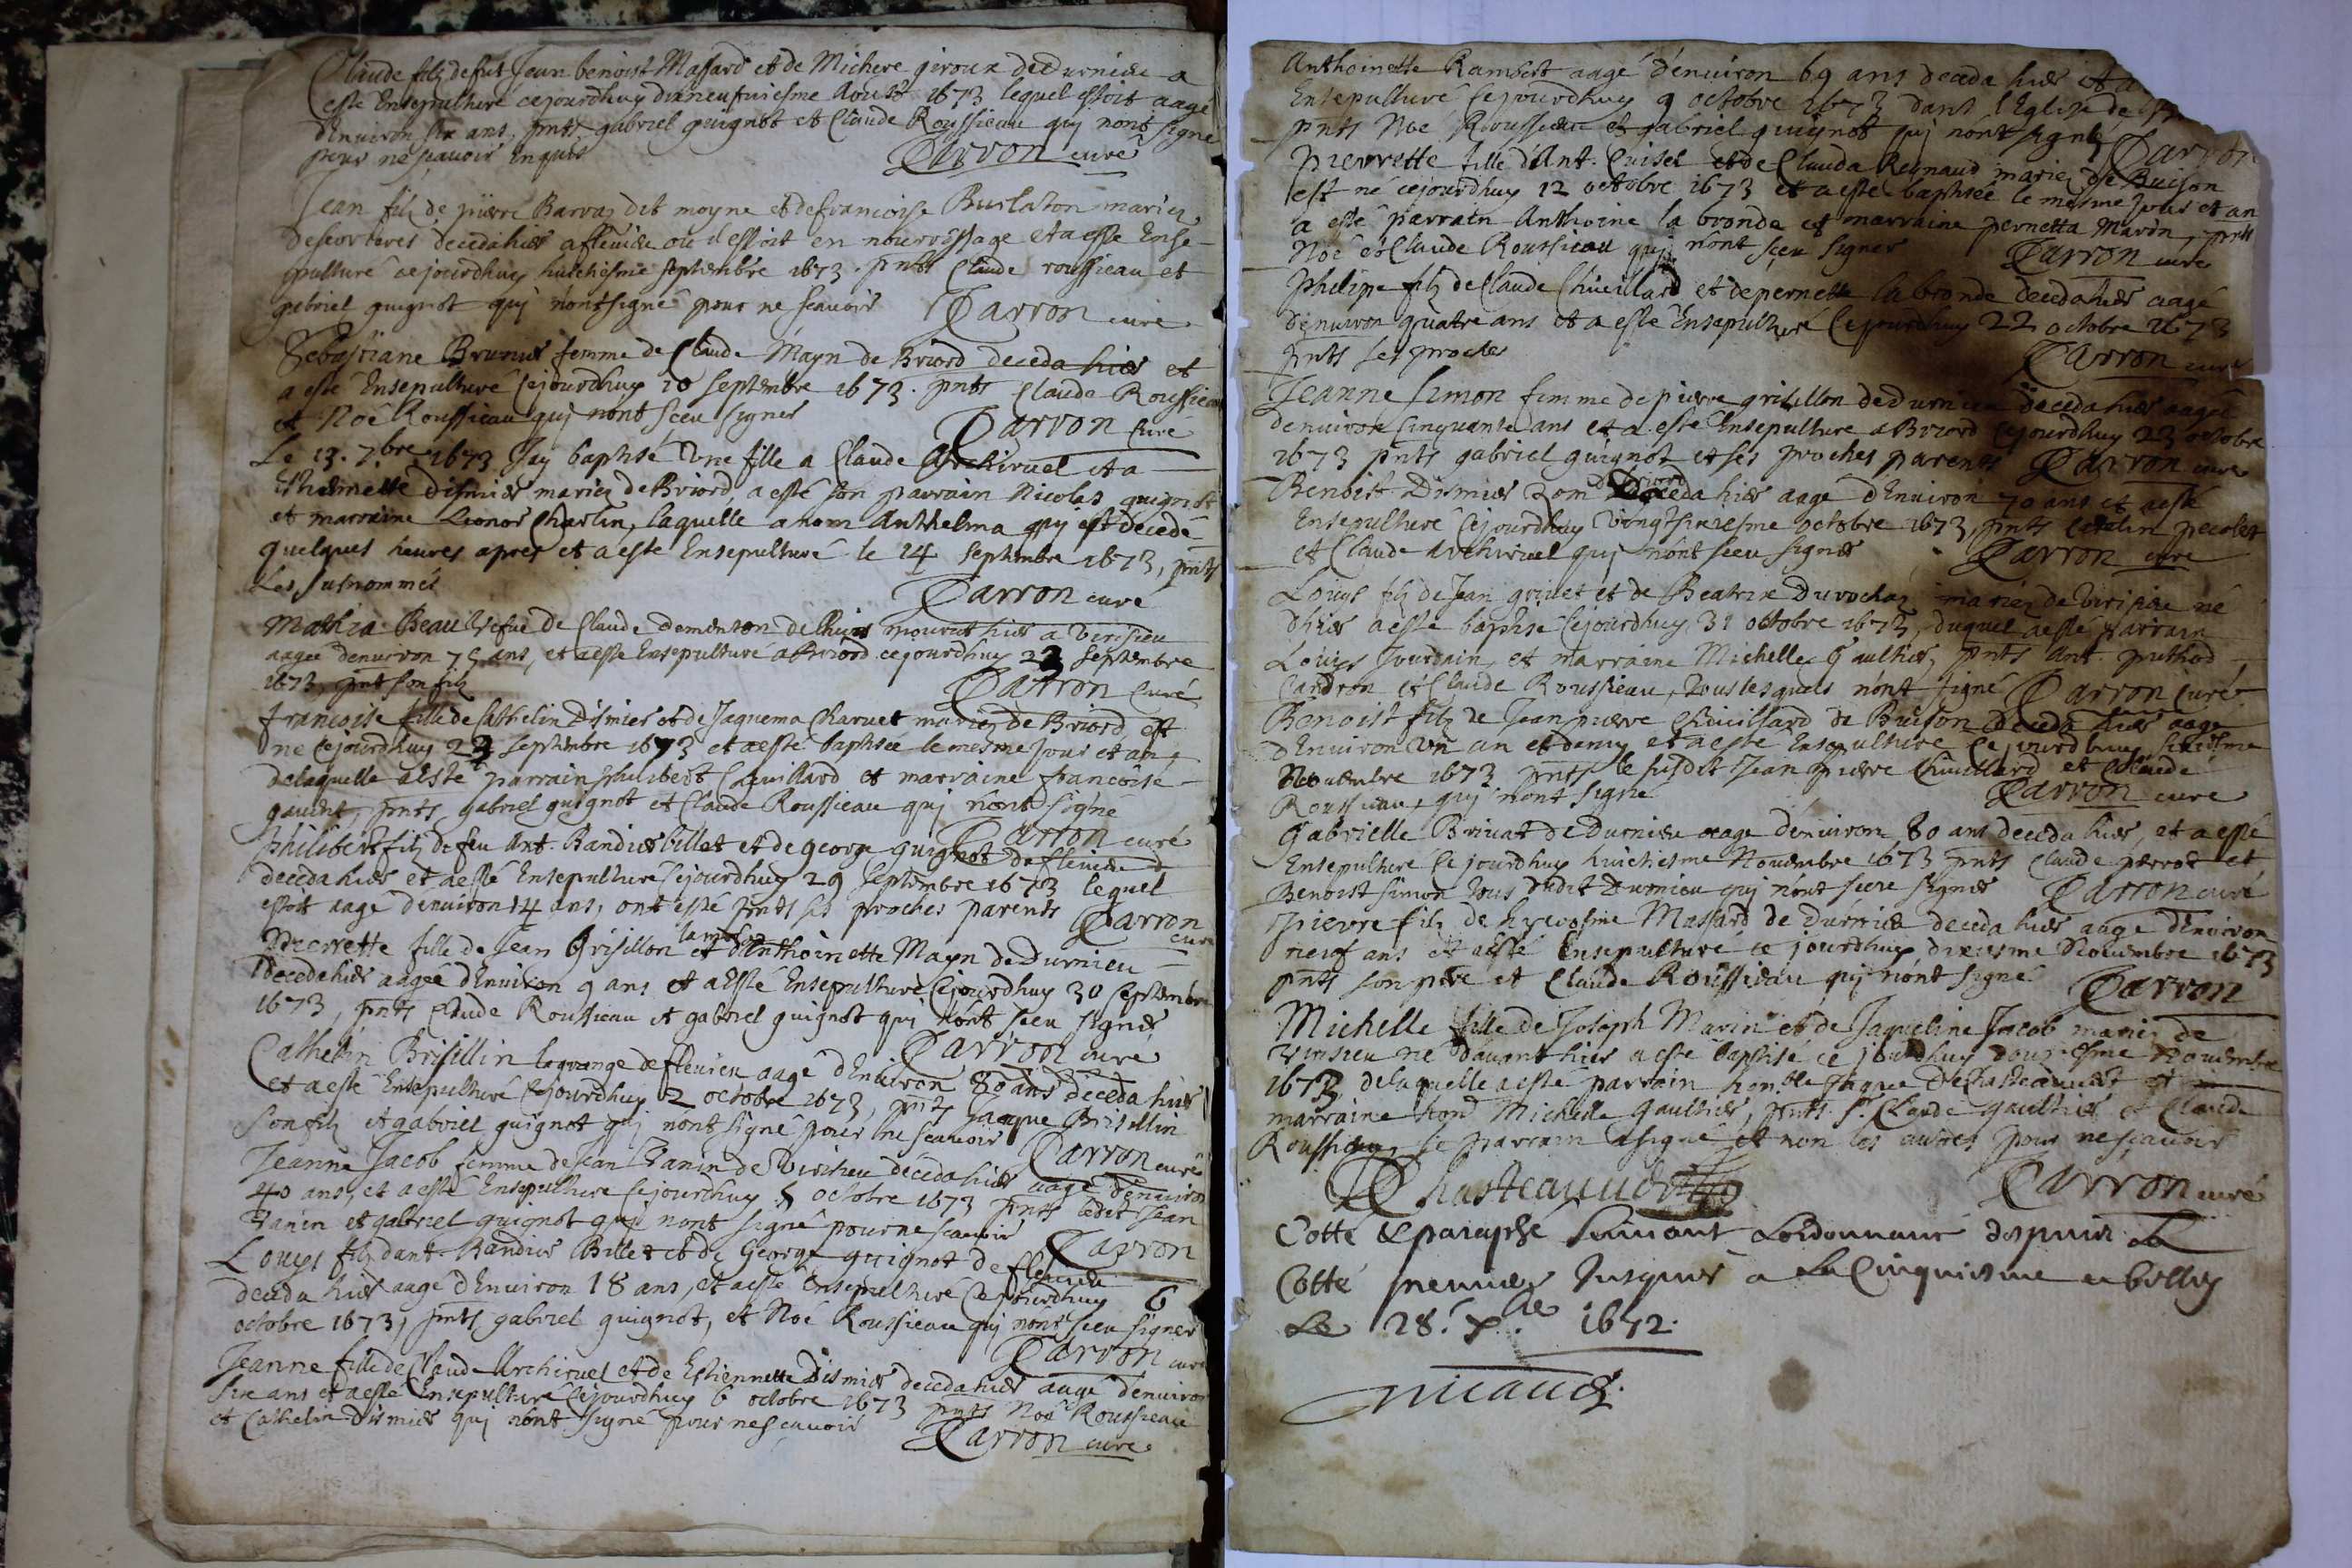 Claude filz de fut Jean benoist Massard et de Michere giroux de Durnieu a
este Ensepulturé cejourdhuy dixneufuiesme Aoust 1673 lequel estoit aagé
dEnuiron six ans, pnts gabriel guignot et Claude Roussieau quj nont signé
pour ne scauoir Enquis Darron curé
Jean filz de pierre Barraz dit moyne et de francoise Burlaton mariez
deceda hier a fleuieu ou il estoit en nourrissage et a esté Ense-
pulturé cejourdhuy huictiesme septembre 1673. pnts Claude roussieau et
gabriel guignot quj nont signé pour ne scauoir Darron curé
Sebastiane Brunier femme de Claude Mayn de Briord deceda hier et
a esté Ensepulturé Cejourdhuy 10 septembre 1673. pnts Claude Roussieau
et Noé Roussieau quj nont sceu signer Darron Curé
Le 13. 7.bre 1673 Jay baptisé Vne fille a Claude Archiruel et a
Estiennette Dismier mariez de Briord, a esté son parrain Nicolas guignot
et marraine Leonor Charlin, laquelle a nom Anthelma quj est décedé
quelques heures apres et a este Ensepulturé le 14 septembre 1673, pnts
Les susnommés Darron curé
Mathia Beau Vefue de Claude Dementon de Lhuis mourut hier a Virisieu
aagee denuiron 75 ans, et a esté Ensepulturé a Briord cejourdhuy 23 septembre
1673, pnt son filz Darron Curé
francoise fille de Cathelin Dismier et de Jaquema Charuet mariez de Briord, est
ne Cejourdhuy 23 septembre 1673 et a esté baptisée le mesme jour et an,
delaquelle a Esté parrain philibert Chuillard et marraine francoise
gauent, pnts gabriel guignot et Claude Roussieau quj nont signé
Darron curé
philibert filz de feu Ant. Randier billet et de george guignot de fleuieu
deceda hier et a esté Ensepulturé Cejourdhuy 29 septembre 1673 lequel
estoit aagé denuiron 14 ans, ont esté pnts ses proches parents Darron
curé
Pierrette fille de Jean Grisillon et dAnthoinette Mayn de Durnieu
deceda hier aagée dEnuiron 9 ans et a Esté Ensepulturé Cejourdhuy 30 Septembre
1673, pnts Claude Roussieau et gabriel guignot quj nont sceu signer
Darron curé
Cathelin Brisillin lagrange de fleuieu aagé dEnuiron 80 ans deceda hier
et a esté Ensepulturé Cejourdhuy 2 octobre 1673, pnts Jaque Brisillin
son filz et gabriel guignot quj nont signé pour ne scauoir Darron curé
Jeanne Jacob femme de Jean Vanin de Virisieu déceda hier aagé denuiron
40 ans, et a esté Ensepulture Cejourdhuy 5 octobre 1673 pnts ledit Jean
Vanin et gabriel guignot quj nont signé pour ne scauoir Darron
Louys filz dant. Randier Billet et de George guignot de fleuieu
deceda hier aagé dEnuiron 18 ans, et a esté Ensepulturé Cejourdhuy 6
octobre 1673, pnts gabriel guignot, et Noé Roussieau quj nont sceu signer
Darron curé
Jeanne fille de Claude Archiruel et de Estiennette Dismier deceda hier aagé denuiron
six ans et a esté Ensepulturé Cejourdhuy 6 octobre 1673 pnts Noé Roussieau
et Cathelin Dismier quj nont signé pour ne scauoir Darron curé
Anthoinette Rambert aagé denuiron 69 ans deceda hier et a
Ensepulturé Cejourdhuy 9 octobre 1673 dans lEglise de
pnts Noe Roussieau et gabriel guignot quj nont signé Darron
pierrette fille dAnt. Cuisel et de Clauda Reynaud mariez de Buison
est né cejourdhuy 12 octobre 1673 et a esté baptisée le mesme jour et an
a esté parrain Anthoine la bronde et marraine pernetta Marin, pnts
Noé et Claude Roussieau quj nont sceu signer Darron curé
philipe filz de Claude Chuillard et de pernette la bronde deceda hier aagé
denuiron quatre ans et a esté Ensepulturé Cejourdhuy 22 octobre 1673
pnts ses proches Darron curé
Jeanne simon femme de pierre grisillon de Durnieu deceda hier aagée
denuiron Cinquante ans et a esté Ensepulture a Briord Cejourdhuy 23 octobre
1673 pnts gabriel guignot et ses proches parents Darron curé
de Briord
Benoist Dismier deceda hier aagé dEnuiron 70 ans et a esté
Ensepulturé Cejourdhuy vingtsixiesme octobre 1673, pnts Catelin pecolet
et Claude Archiruel quj nont sceu signer Darron curé
Louys filz de Jean griuet et de Beatrix Durochaz mariez de Virisieu né
dhier a esté baptisé Cejourdhuy 31 octobre 1673, duquel a esté parrain
Louys Jourdain, et marraine Michelle Gaultier, pnts Ant. puthod
Candron et Claude Roussieau, tous lesquels nont signé Darron Curé
Benoist filz de Jean pierre Chuillard de Buison deceda hier aagé
dEnuiron vn an et demy et a esté Ensepulturé Cejourdhuy sixiesme
Nouembre 1673 pnts le susdit Jean pierre Chuillard et Claude
Roussieau, quj nont signé Darron curé
Gabrielle Briuat de Durnieu aagé denuiron 80 ans deceda hier, et a esté
Ensepulturé Cejourdhuy huictiesme Nouembre 1673 pnts Claude perrot et
Benoist simon tous dudit Durnieu quj nont sceu signer Darron curé
pierre filz de hyerosme Massard de Durnieu deceda hier aagé denuiron
neuf ans et a esté Ensepulturé ce jourdhuy dixiesme Nouembre 1673
pnts son père et Claude Roussieau quj nont signé Darron
Michelle fille de Joseph Marin et de Jaqueline Jacob mariez de
Virisieu né dauant hier a esté baptisé ce jourdhuy douziesme nouembre
1673, delaquelle a esté parrain honble Jaque De Chasteauuert et
marraine hon. Michelle gaultier, pnts sr. Claude gaultier et Claude
Roussieau, le parrain a signé et non les autres pour ne scauoir
DChasteauuert Darron curé
Cotté & paraphé suiuant Lordonnance depuis La
Cotté premier Jusques a La Cinquiesme a belley
Le 28. x.bre 1672.